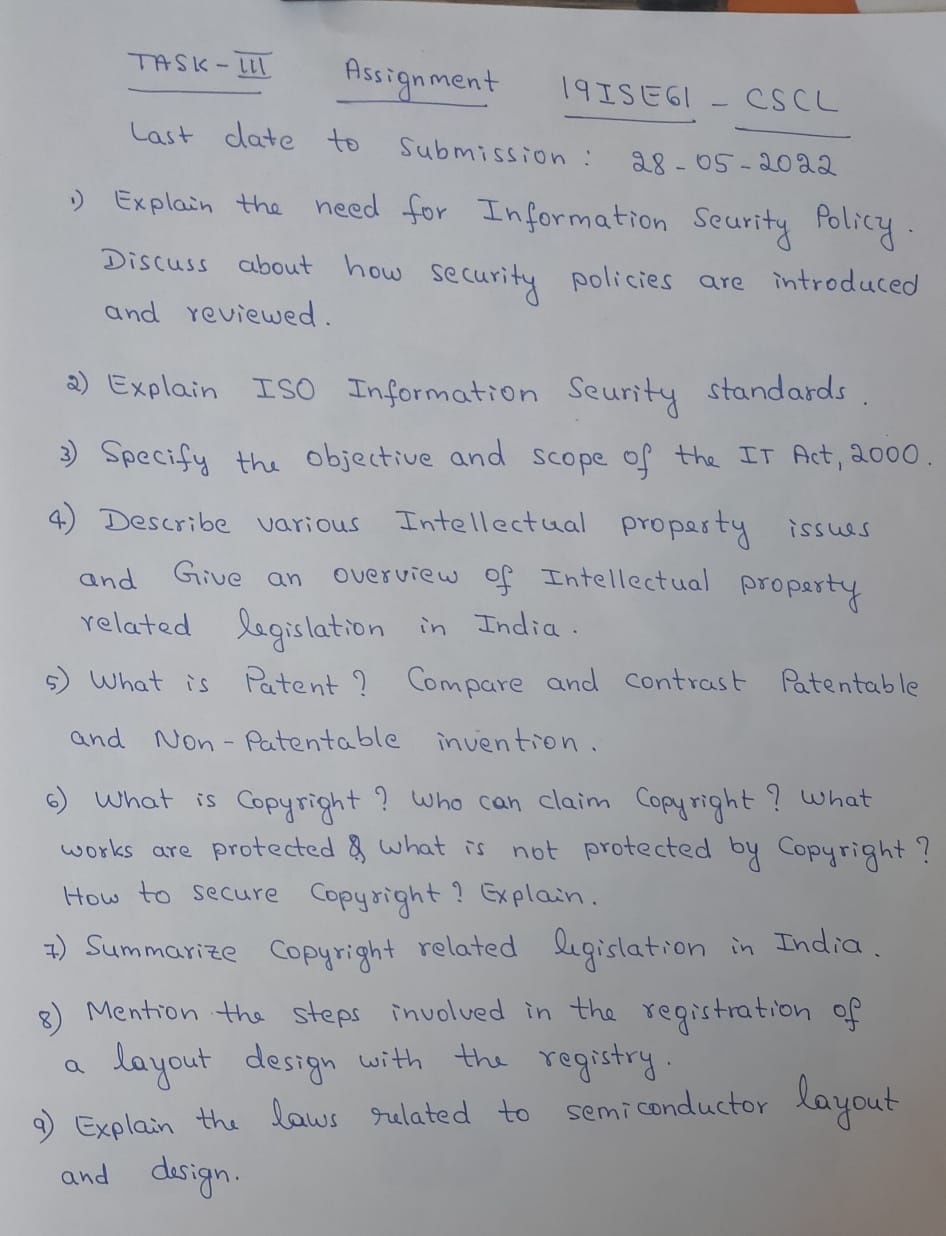 TASK-III Assignment 19ISE61 - CSCL
Last date to Submission : 28-05-2022
1) Explain the need for Information Seurity Policy.
Discuss about how security policies are introduced
and reviewed.
2) Explain ISO Information Seurity standards.
3) Specify the objective and scope of the IT Act, 2000.
4) Describe various Intellectual property issues
and Give an overview of Intellectual property
related legislation in India.
5) What is Patent? Compare and contrast Patentable
and Non-Patentable invention.
6) What is Copyright? Who can claim Copyright? What
works are protected & what is not protected by Copyright?
How to secure Copyright? Explain.
7) Summarize Copyright related legislation in India.
8) Mention the steps involved in the registration of
a layout design with the registry.
9) Explain the laws related to semiconductor layout
and design.